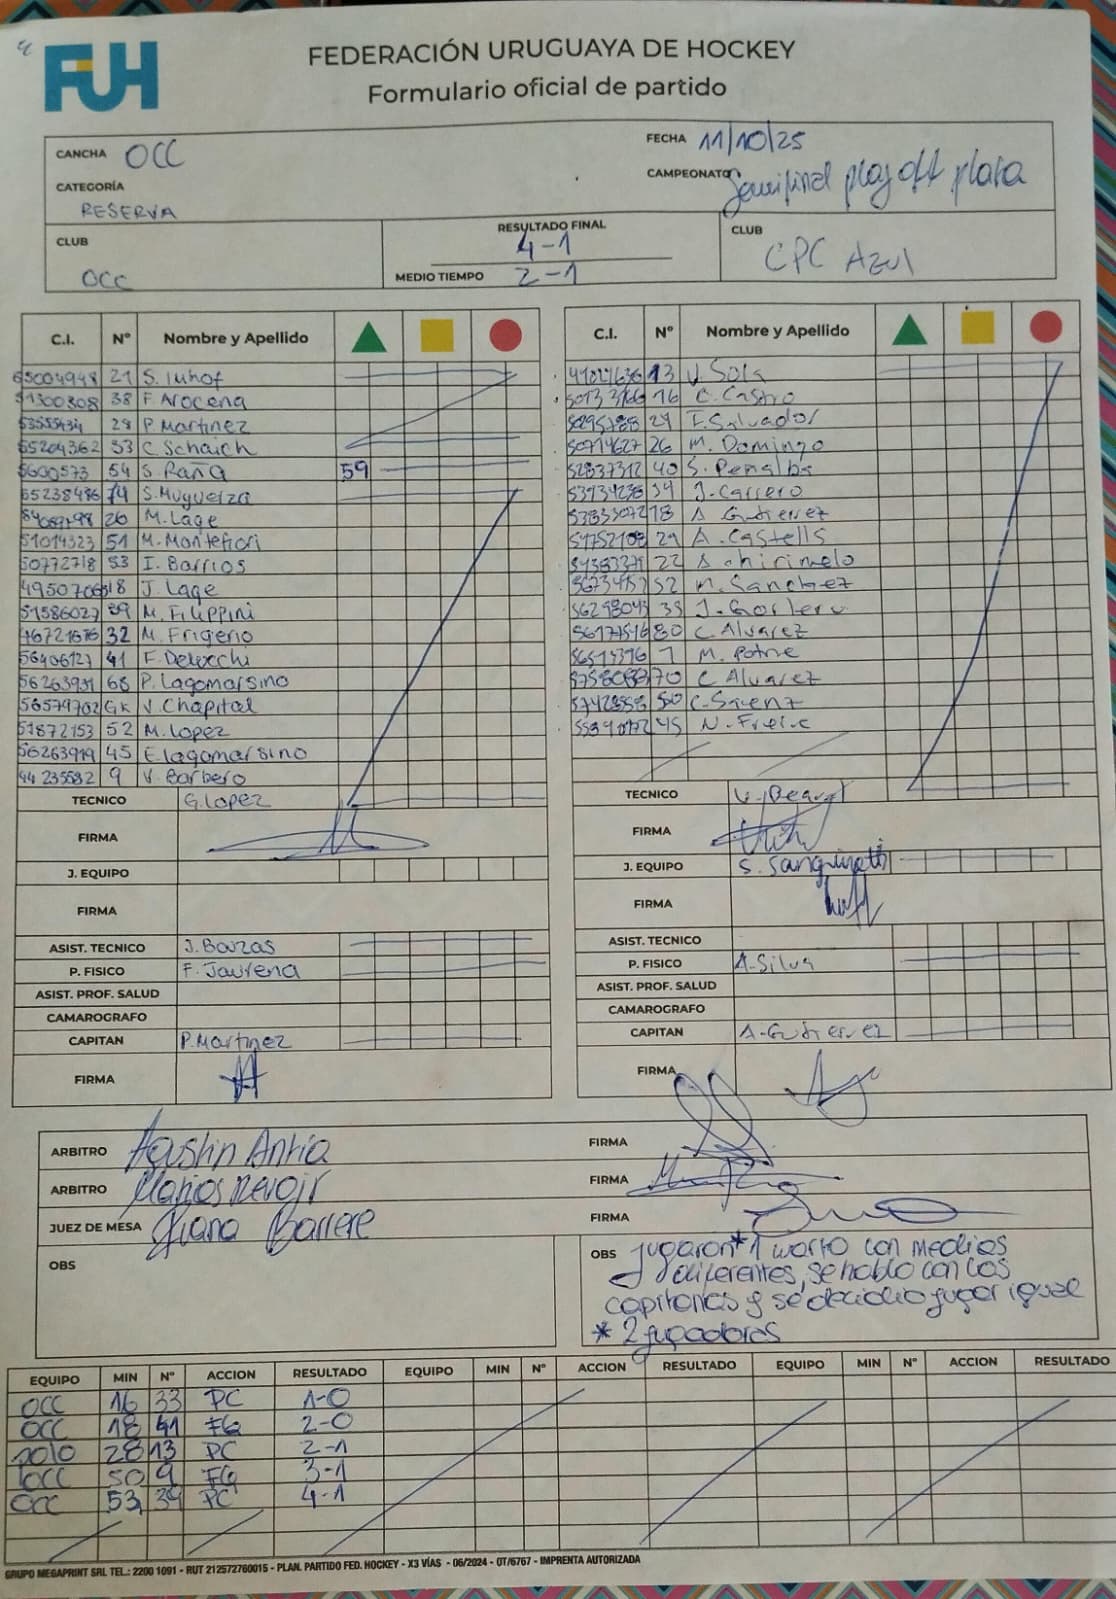 4
FUH
FEDERACIÓN URUGUAYA DE HOCKEY
Formulario oficial de partido
CANCHA OCC
FECHA 11/10/25
CATEGORÍA RESERVA
CAMPEONATO Semifinal play off plata
CLUB OCC
RESULTADO FINAL 4-1
MEDIO TIEMPO 2-1
CLUB CPC AZUL
C.I. Nº Nombre y Apellido
21 S. Imhof
51300808 38 F. Arocena
28 P. Martinez
55204362 33 C. Schaich
5600573 54 S. Raña 59
55238486 74 S. Muguerza
26 M. Lage
51014323 51 M. Montefiori
50772718 53 I. Barrios
18 J. Lage
51586027 39 M. Filippini
32 M. Frigerio
56406127 41 F. Delucchi
56263931 68 P. Lagomarsino
56579702 GK V. Chapital
51872153 52 M. Lopez
56263919 45 E. Lagomarsino
44235582 9 V. Barbero
TECNICO G. Lopez
FIRMA
J. EQUIPO
FIRMA
ASIST. TECNICO J. Bazas
P. FISICO F. Jaurena
ASIST. PROF. SALUD
CAMAROGRAFO
CAPITAN P. Martinez
FIRMA
C.I. Nº Nombre y Apellido
13 V. Sola
16 C. Castro
F. Salvador
50714627 26 M. Domingo
52837312 40 S. Penalba
J. Carrero
18 A. Gutierrez
A. Castells
22 A. Chirimelo
52 M. Sanchez
J.
80 C. Alvarez
7 M.
70 C. Alvarez
50 C. Saenz
45 N. Freire
TECNICO
FIRMA
J. EQUIPO S. Sanguinetti
FIRMA
ASIST. TECNICO
P. FISICO A. Silva
ASIST. PROF. SALUD
CAMAROGRAFO
CAPITAN A. Gutierrez
FIRMA
ARBITRO Agustin Antia FIRMA
ARBITRO FIRMA
JUEZ DE MESA Juana Barrere FIRMA
OBS
OBS Jugaron *1 warto con medias
diferentes, se hablo con las
capitanas y se decidio jugar igual
* 2 jugadoras
EQUIPO MIN Nº ACCION RESULTADO EQUIPO MIN Nº ACCION RESULTADO EQUIPO MIN Nº ACCION RESULTADO
OCC 16 33 PC 1-0
OCC 18 41 FG 2-0
polo 28 13 PC 2-1
OCC 50 9 FG 3-1
OCC 53 39 PC 4-1
GRUPO MEGAPRINT SRL TEL.: 2200 1091 - RUT 212572760015 - PLAN. PARTIDO FED. HOCKEY - X3 VÍAS - 06/2024 - OT/6767 - IMPRENTA AUTORIZADA